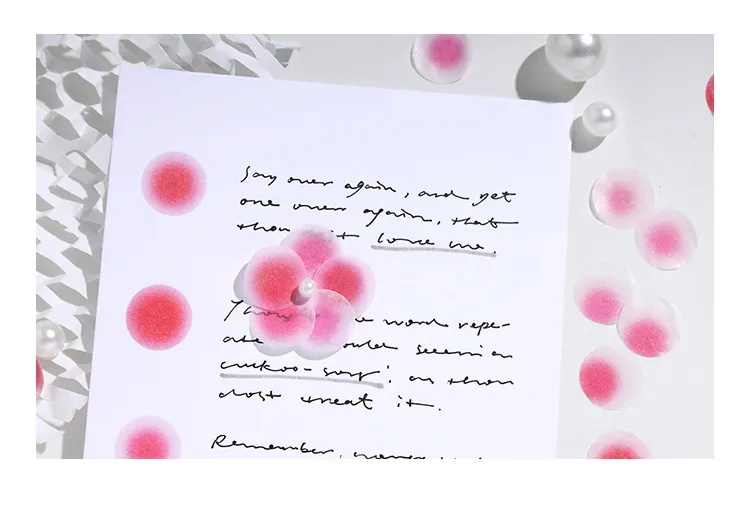 Say over again, and yet
once over again, that
thou love me.
word repe-
seem a
cuckoo-song', as thou
dost treat it.
Remember, never